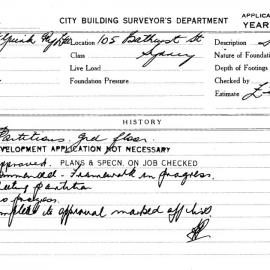 CITY BUILDING SURVEYOR'S DEPARTMENT
APPLICA
YEAR
Pty Ltd Location 105 Bathurst St Description
Class Sydney Nature of Foundation
Live Load Depth of Footings
Foundation Pressure Checked by
Estimate £
HISTORY
Partitions, Grd floor.
DEVELOPMENT APPLICATION NOT NECESSARY
Approved. PLANS & SPECN. ON JOB CHECKED
Commenced - Framework in progress.
partition
progress.
approval marked off